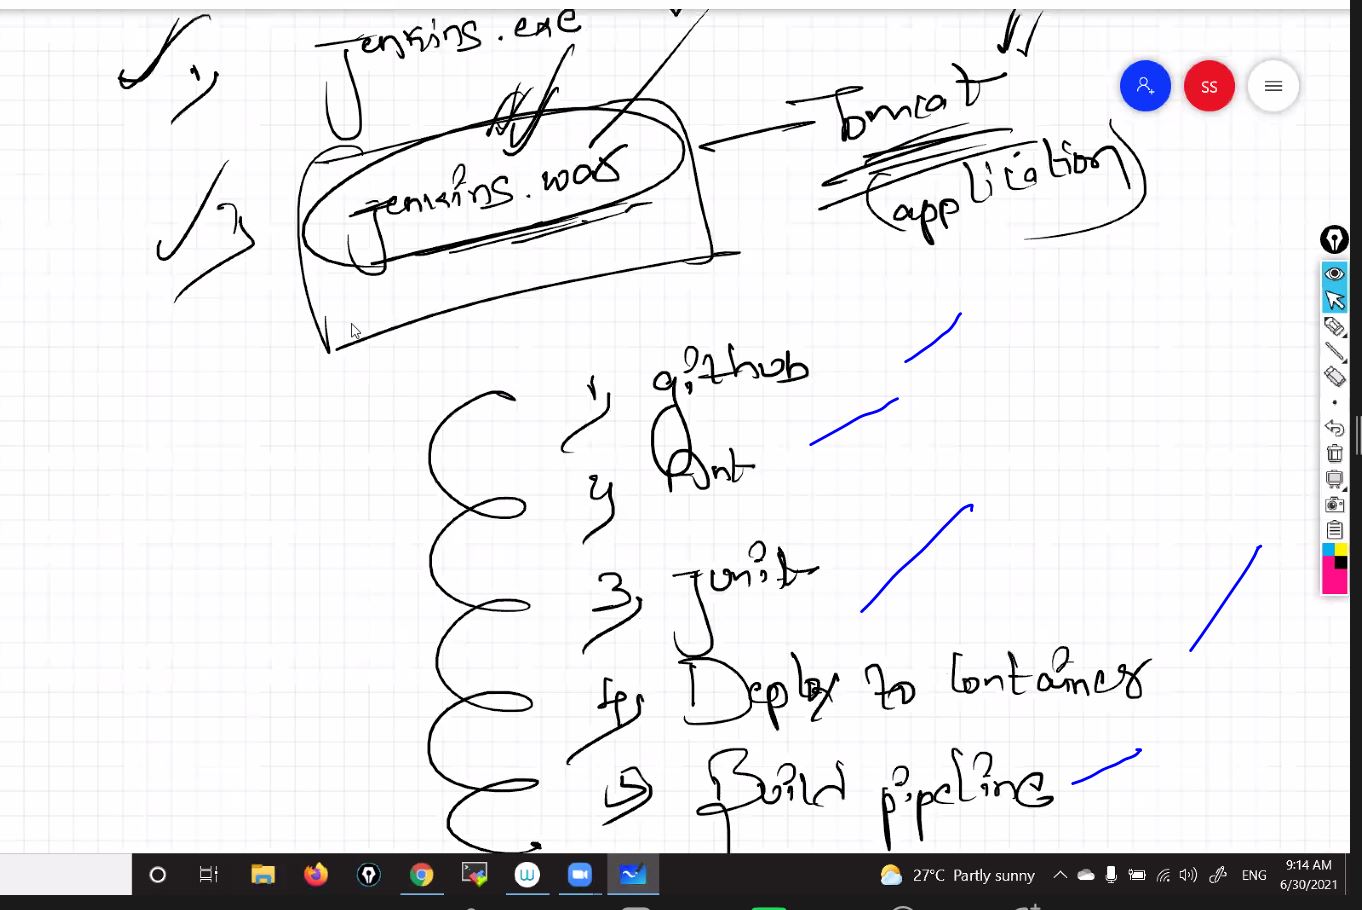 1) Jenkins.exe
SS
2) Jenkins.war
Tomcat
(application)
1) github
2) Ant
3) Junit
4) Deploy to Container
5) Build pipeline
27°C Partly sunny
ENG
9:14 AM
6/30/2021